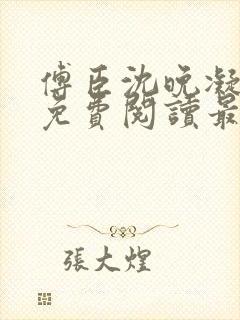 傅臣沈晚凝
免費閱讀最
張大煌